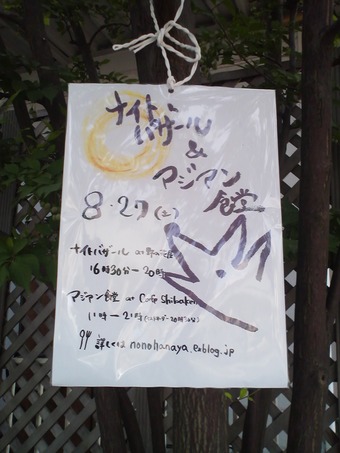 ナイト
バザール
&
マジマン
食堂
8・27(土)
ナイトバザール at 野の花屋
16時30分ー20時
マジマン食堂 at Cafe Shibaken
11時ー21時
詳しくは nonohanaya.exblog.jp